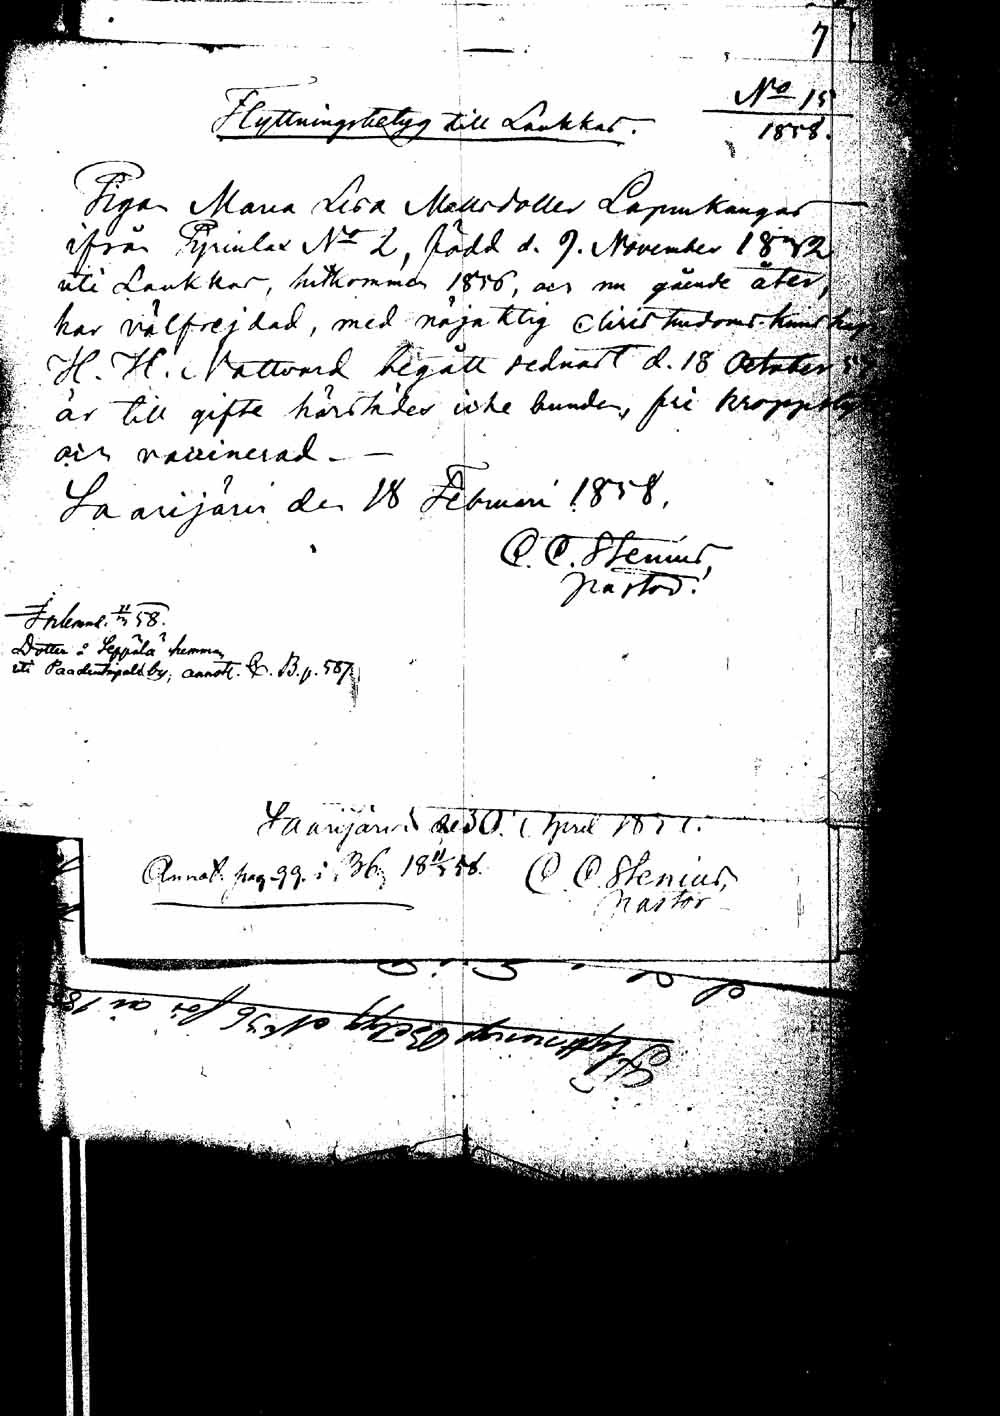 7
No 15
1858.
Flyttningsbetyg till Laukkas.
Pigan Maria Lisa Mattsdotter Lapinkangas
ifrån Pyrinlax No 2, född d. 9. November 1832
uti Laukkas, hitkommen 1856, och nu gående åter,
har välfrejdad, med nöjaktig Christendoms-kunskap
H. H. Nattvard begått sednast d. 18 October 57
är till gifte härstädes icke bunden, fri
och vaccinerad. —
Saarijärvi den 18 Februari 1858.
C. C. Stenius,
pastor.
58.
Dotter å Seppälä hemman
uti by, annot. B. p. 587.
Saarijärvi den 30 April 1857.
Annot. pag 99. i 58.
C. C. Stenius,
pastor
Flyttnings Betyg No 36 för år 18